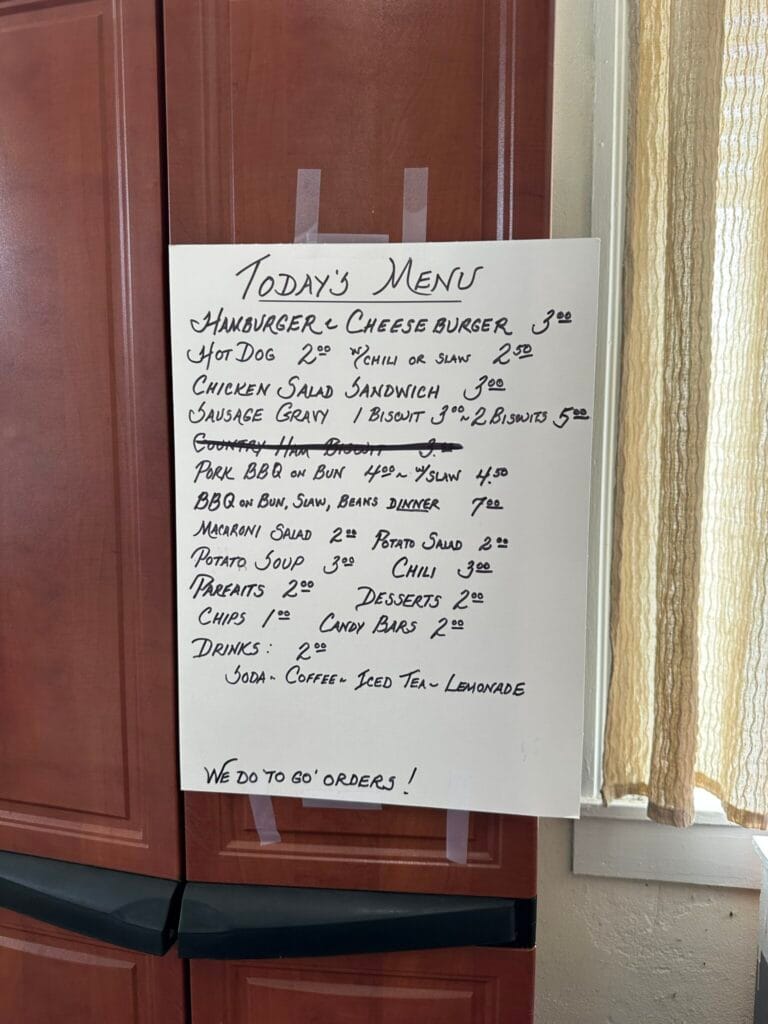 TODAY'S MENU
HAMBURGER ~ CHEESEBURGER 3.00
HOT DOG 2.00 W/CHILI OR SLAW 2.50
CHICKEN SALAD SANDWICH 3.00
SAUSAGE GRAVY 1 BISCUIT 3.00 ~ 2 BISCUITS 5.00
COUNTRY HAM BISCUIT 3.00
PORK BBQ ON BUN 4.00 ~ W/SLAW 4.50
BBQ ON BUN, SLAW, BEANS DINNER 7.00
MACARONI SALAD 2.00 POTATO SALAD 2.00
POTATO SOUP 3.00 CHILI 3.00
PARFAITS 2.00 DESSERTS 2.00
CHIPS 1.00 CANDY BARS 2.00
DRINKS: 2.00
SODA ~ COFFEE ~ ICED TEA ~ LEMONADE
WE DO 'TO GO' ORDERS!